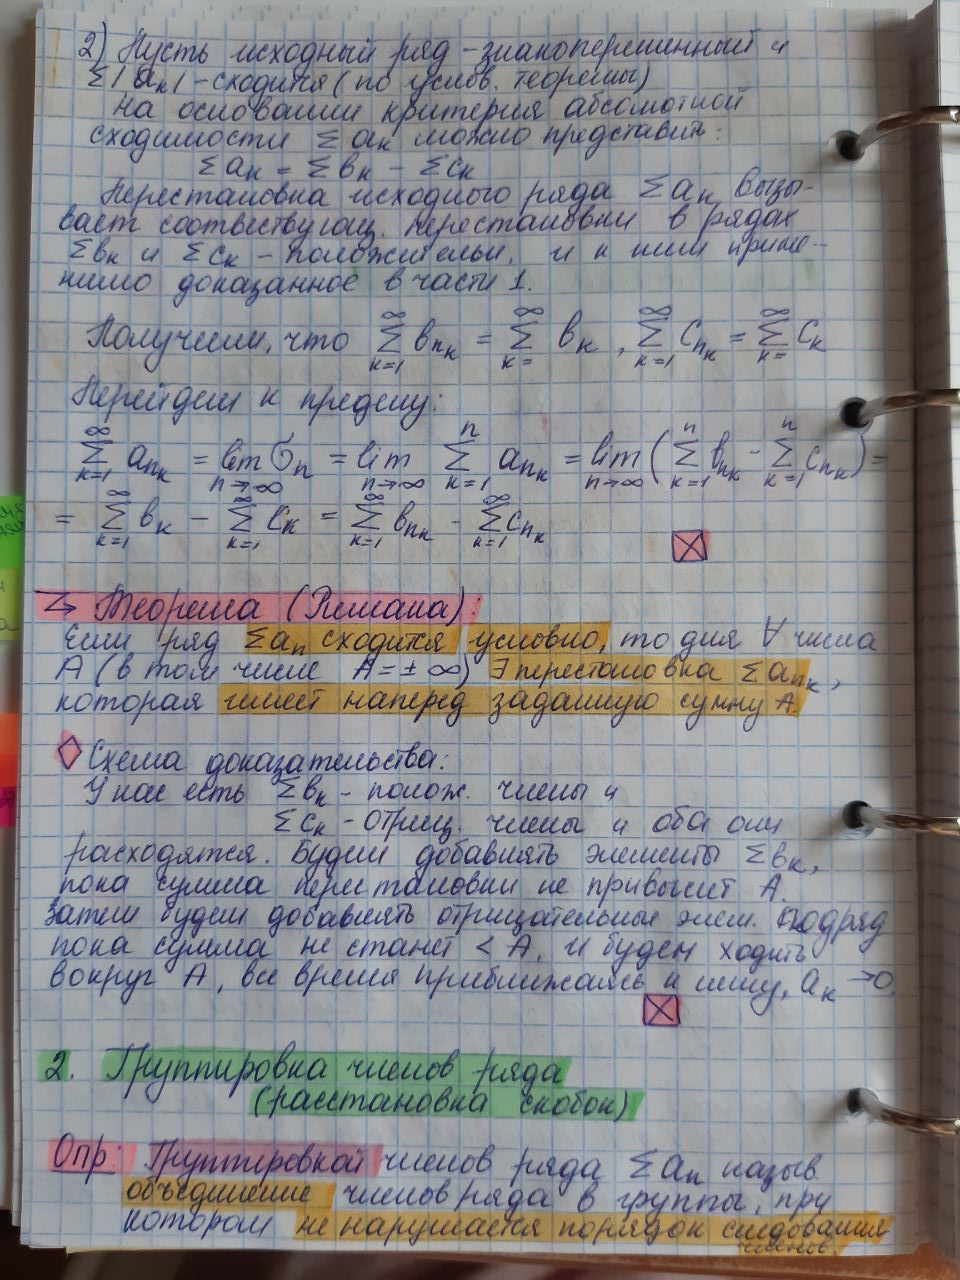 2) Пусть исходный ряд - знакопеременный и
Σ|aₖ| - сходится (по услов. теоремы)
На основании критерия абсолютной
сходимости Σaₖ можно представить:
Σaₖ = Σbₖ - Σcₖ
Перестановка исходного ряда Σaₖ вызы-
вает соотвествующ. перестановки в рядах
Σbₖ и Σcₖ - положительн., и к ним приме-
нимо доказанное в части 1.
Получим, что ∞Σk=1 bₙₖ = ∞Σk= bₖ, ∞Σk=1 cₙₖ = ∞Σk= cₖ
Перейдем к пределу:
∞Σk=1 aₙₖ = lim n→∞ σₙ = lim n→∞ nΣk=1 aₙₖ = lim n→∞ (nΣk=1 bₙₖ - nΣk=1 cₙₖ) =
= ∞Σk=1 bₖ - ∞Σk=1 cₖ = ∞Σk=1 bₙₖ - ∞Σk=1 cₙₖ
Теорема (Римана):
Если ряд Σaₙ сходится условно, то для ∀ числа
A (в том числе A = ± ∞) ∃ перестановка Σaₙₖ,
которая имеет наперед заданную сумму A.
Схема доказательства:
У нас есть Σbₖ - полож. члены и
Σcₖ - отриц. члены и оба они
расходятся. Будем добавлять элементы Σbₖ,
пока сумма перестановки не привысит A.
Затем будем добавлять отрицательные элем. подряд
пока сумма не станет < A. И будем ходить
вокруг A, все время приближаясь к нему, aₖ → 0.
2. Группировка членов ряда
(расстановка скобок)
Опр: Группировкой членов ряда Σaₙ назыв.
объединение членов ряда в группы, при
котором не нарушается порядок следования
членов.